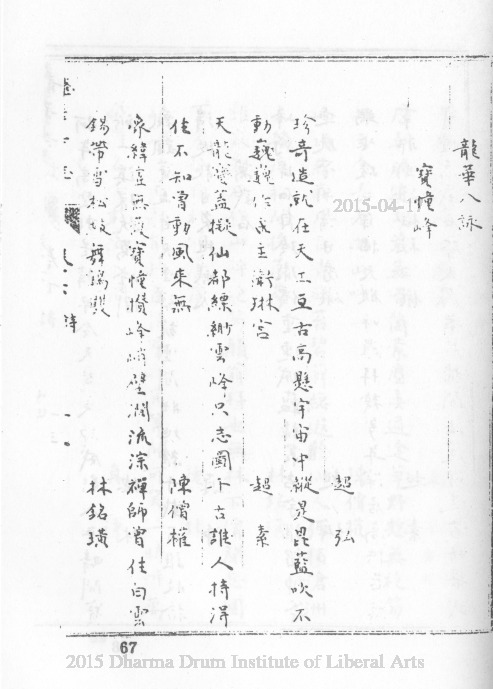 龍華八詠
寶幢峰
超弘
珍奇造就在天工亙古高懸宇宙中縱是毘藍吹不
動巍巍作主衛琳宮
超素
天龍寶蓋擬仙都縹緲雲降只志圖千古誰人持得
住不知曾動風來無
陳僧權
寶幢攢峰峭壁澗流淙禪師曾住白雲
錫帶雪松枝舞鶴雙
林銘璜
詩
67
2015-04-1
2015 Dharma Drum Institute of Liberal Arts